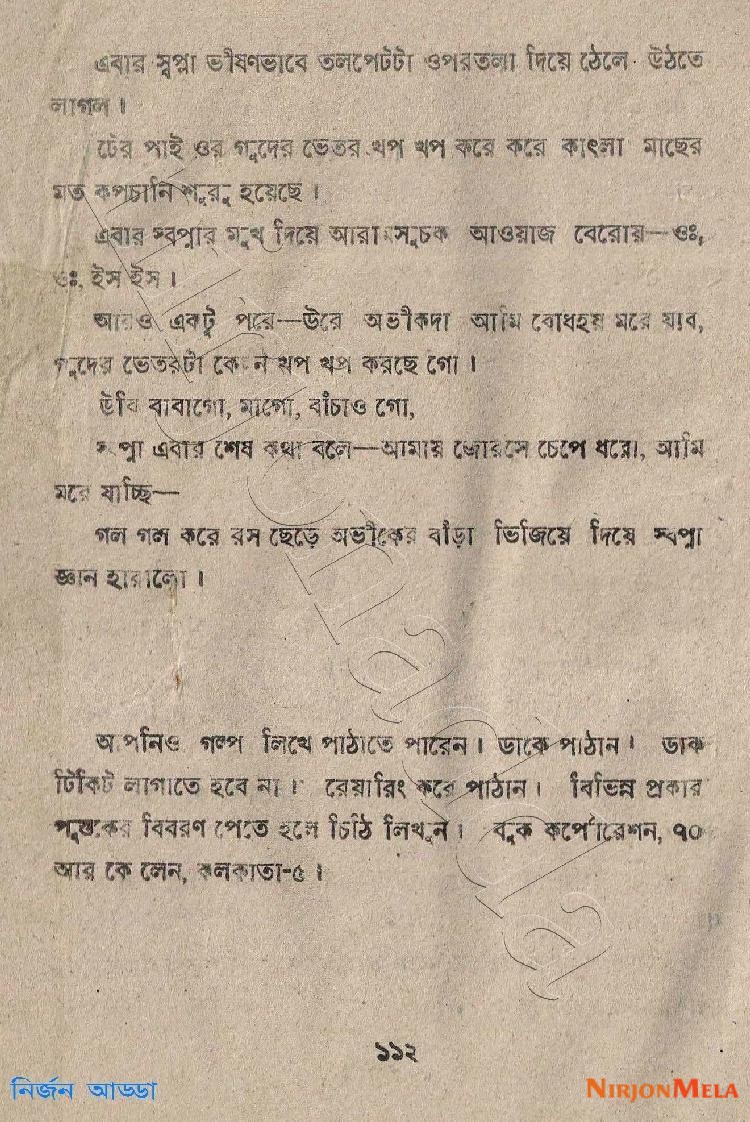 এবার স্বপ্না ভীষণভাবে তলপেটটা ওপরতলা দিয়ে ঠেলে উঠতে
লাগল।
টের পাই ওর গুদের ভেতর খপ খপ করে করে কাৎলা মাছের
মত কপচানি শুরু হয়েছে।
এবার স্বপ্নার মুখ দিয়ে আরামসূচক আওয়াজ বেরোয়—ওঃ,
ওঃ, ইস ইস।
আরও একটু পরে—উরে অভীকদা আমি বোধহয় মরে যাব,
গুদের ভেতরটা কেমন খপ খপ করছে গো।
উরি বাবাগো, মাগো, বাঁচাও গো,
স্বপ্না এবার শেষ কথা বলে—আমায় জোরসে চেপে ধরো, আমি
মরে যাচ্ছি—
গল গল করে রস ছেড়ে অভীকের বাঁড়া ভিজিয়ে দিয়ে স্বপ্না
জ্ঞান হারালো।
আপনিও গল্প লিখে পাঠাতে পারেন। ডাকে পাঠান। ডাক
টিকিট লাগাতে হবে না। বেয়ারিং করে পাঠান। বিভিন্ন প্রকার
পুস্তকের বিবরণ পেতে হলে চিঠি লিখুন। বুক কর্পোরেশন, ৭০
আর কে লেন, কলকাতা-৫।
১১২
নির্জন আড্ডা
NIRJONMELA